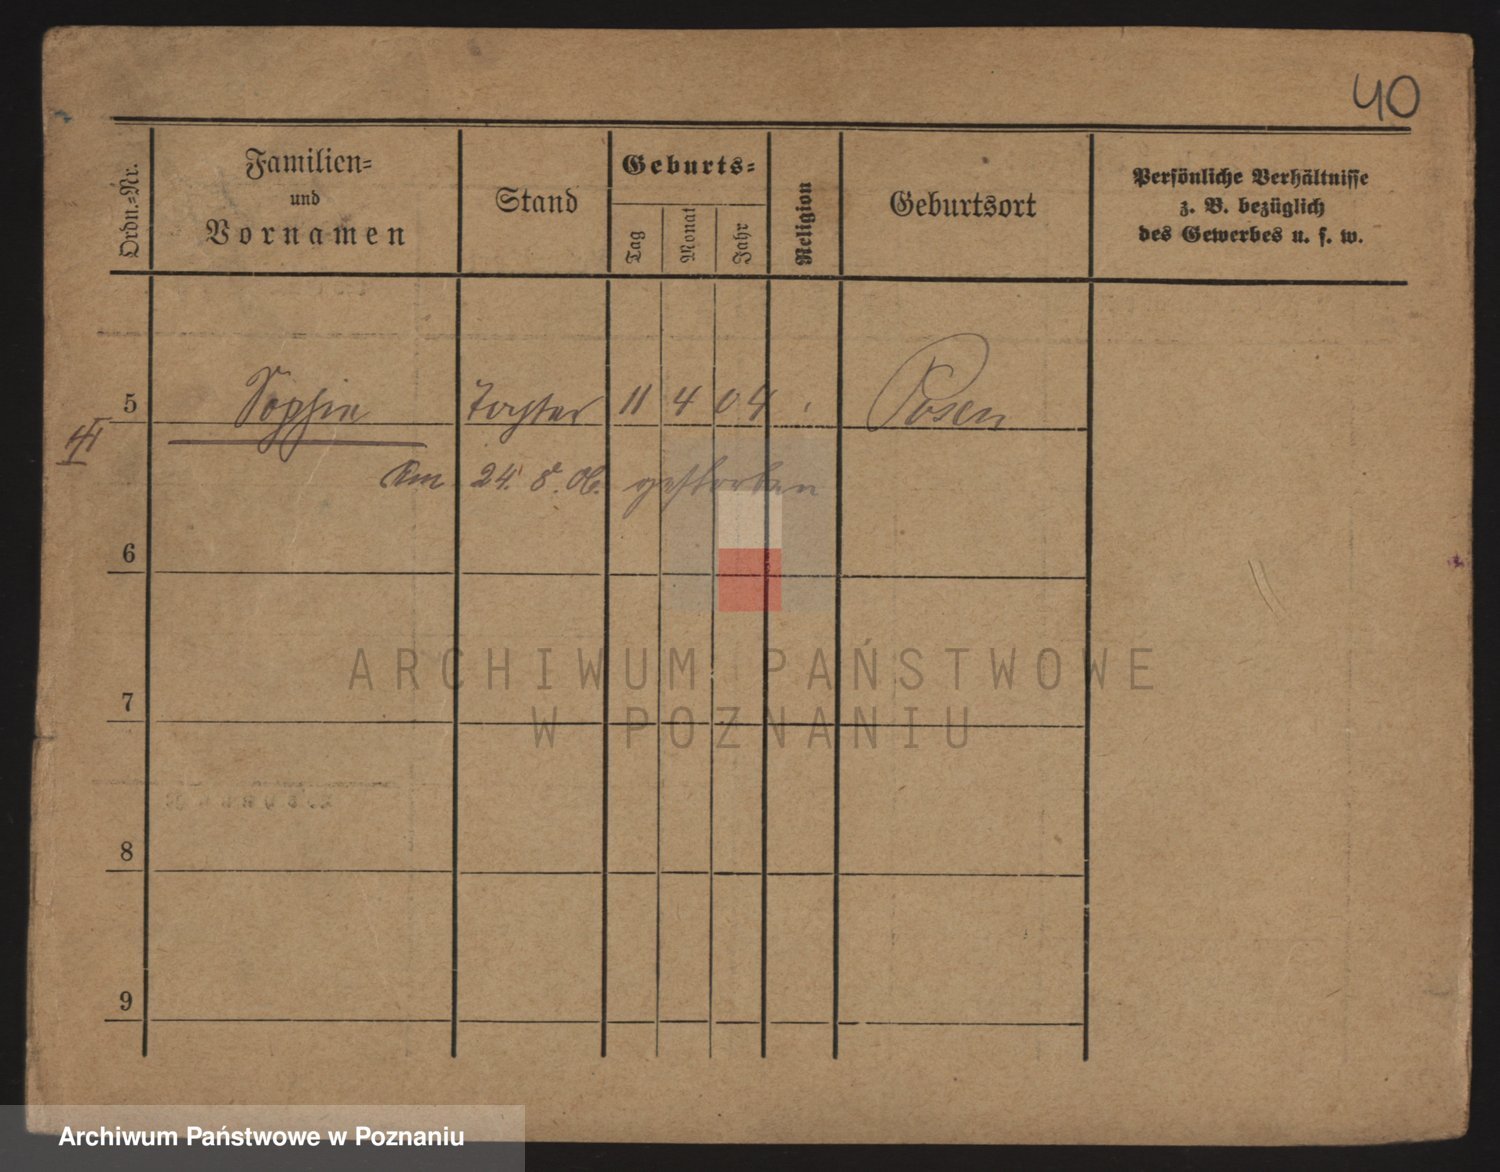 40
Ordn.-Nr.
Familien-
und
Vornamen
Stand
Geburts-
Tag
Monat
Jahr
Religion
Geburtsort
Persönliche Verhältnisse
z. B. bezüglich
des Gewerbes u. s. w.
5 Sophie Tochter 11 4 04 Posen
Am 24. 8. 06. gestorben
6
7
8
9
ARCHIWUM PAŃSTWOWE
W POZNANIU
Archiwum Państwowe w Poznaniu